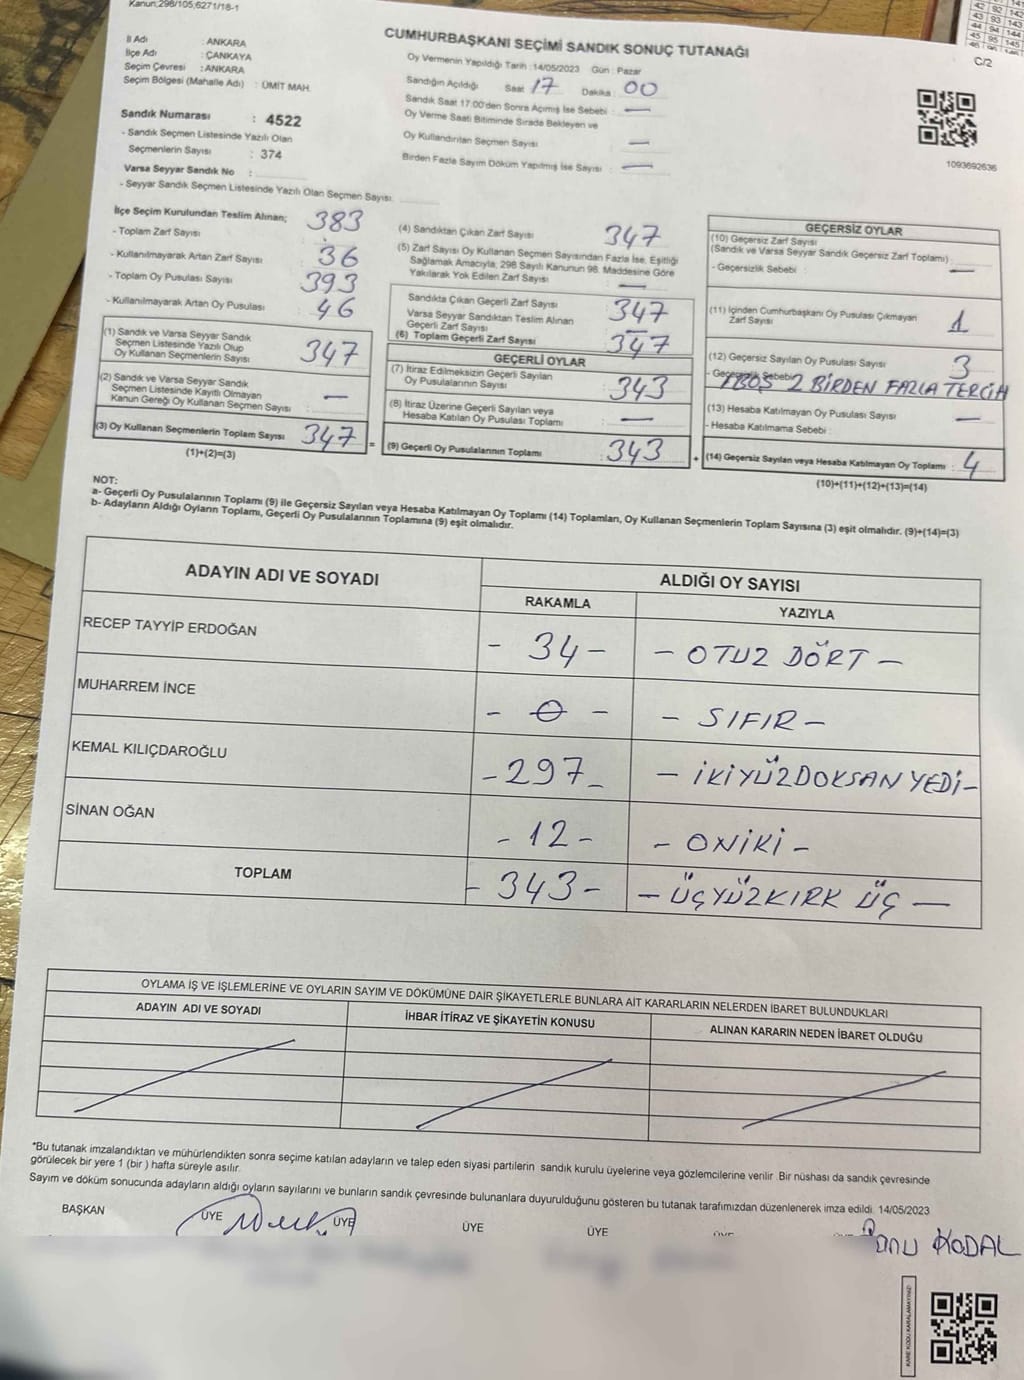 Kanun;298/105,6271/18-1
İl Adı : ANKARA
İlçe Adı : ÇANKAYA
Seçim Çevresi : ANKARA
Seçim Bölgesi (Mahalle Adı) : ÜMİT MAH.
Sandık Numarası : 4522
- Sandık Seçmen Listesinde Yazılı Olan
Seçmenlerin Sayısı : 374
Varsa Seyyar Sandık No :
- Seyyar Sandık Seçmen Listesinde Yazılı Olan Seçmen Sayısı
CUMHURBAŞKANI SEÇİMİ SANDIK SONUÇ TUTANAĞI
Oy Vermenin Yapıldığı Tarih : 14/05/2023 Gün : Pazar
Sandığın Açıldığı Saat 17 Dakika 00
Sandık Saat 17:00'den Sonra Açılmış İse Sebebi : —
Oy Verme Saati Bitiminde Sırada Bekleyen ve
Oy Kullandırılan Seçmen Sayısı —
Birden Fazla Sayım Döküm Yapılmış İse Sayısı : —
C/2
1093692636
42 92 142
43 93 143
44 94 144
45 95 145
İlçe Seçim Kurulundan Teslim Alınan;
- Toplam Zarf Sayısı 383
- Kullanılmayarak Artan Zarf Sayısı : 36
- Toplam Oy Pusulası Sayısı : 393
- Kullanılmayarak Artan Oy Pusulası : 46
(1) Sandık ve Varsa Seyyar Sandık
Seçmen Listesinde Yazılı Olup
Oy Kullanan Seçmenlerin Sayısı : 347
(2) Sandık ve Varsa Seyyar Sandık
Seçmen Listesinde Kayıtlı Olmayan
Kanun Gereği Oy Kullanan Seçmen Sayısı : —
(3) Oy Kullanan Seçmenlerin Toplam Sayısı : 347 =
(1)+(2)=(3)
(4) Sandıktan Çıkan Zarf Sayısı 347
(5) Zarf Sayısı Oy Kullanan Seçmen Sayısından Fazla İse, Eşitliği
Sağlamak Amacıyla, 298 Sayılı Kanunun 98. Maddesine Göre
Yakılarak Yok Edilen Zarf Sayısı : —
Sandıkta Çıkan Geçerli Zarf Sayısı : 347
Varsa Seyyar Sandıktan Teslim Alınan
Geçerli Zarf Sayısı : —
(6) Toplam Geçerli Zarf Sayısı : 347
GEÇERLİ OYLAR
(7) İtiraz Edilmeksizin Geçerli Sayılan
Oy Pusulalarının Sayısı : 343
(8) İtiraz Üzerine Geçerli Sayılan veya
Hesaba Katılan Oy Pusulası Toplamı : —
(9) Geçerli Oy Pusulalarının Toplamı : 343 +
GEÇERSİZ OYLAR
(10) Geçersiz Zarf Sayısı
(Sandık ve Varsa Seyyar Sandık Geçersiz Zarf Toplamı) :
- Geçersizlik Sebebi : —
(11) İçinden Cumhurbaşkanı Oy Pusulası Çıkmayan
Zarf Sayısı : 1
(12) Geçersiz Sayılan Oy Pusulası Sayısı : 3
- Geçersizlik Sebebi : 1 BOŞ 2 BİRDEN FAZLA TERCİH
(13) Hesaba Katılmayan Oy Pusulası Sayısı : —
- Hesaba Katılmama Sebebi :
(14) Geçersiz Sayılan veya Hesaba Katılmayan Oy Toplamı : 4
(10)+(11)+(12)+(13)=(14)
NOT:
a- Geçerli Oy Pusulalarının Toplamı (9) ile Geçersiz Sayılan veya Hesaba Katılmayan Oy Toplamı (14) Toplamları, Oy Kullanan Seçmenlerin Toplam Sayısına (3) eşit olmalıdır. (9)+(14)=(3)
b- Adayların Aldığı Oyların Toplamı, Geçerli Oy Pusulalarının Toplamına (9) eşit olmalıdır.
ADAYIN ADI VE SOYADI
ALDIĞI OY SAYISI
RAKAMLA YAZIYLA
RECEP TAYYİP ERDOĞAN - 34 - - OTUZ DÖRT -
MUHARREM İNCE - 0 - - SIFIR -
KEMAL KILIÇDAROĞLU - 297 - - İKİYÜZDOKSAN YEDİ -
SİNAN OĞAN - 12 - - ONİKİ -
TOPLAM - 343 - - ÜÇYÜZKIRK ÜÇ —
OYLAMA İŞ VE İŞLEMLERİNE VE OYLARIN SAYIM VE DÖKÜMÜNE DAİR ŞİKAYETLERLE BUNLARA AİT KARARLARIN NELERDEN İBARET BULUNDUKLARI
ADAYIN ADI VE SOYADI İHBAR İTİRAZ VE ŞİKAYETİN KONUSU ALINAN KARARIN NEDEN İBARET OLDUĞU
*Bu tutanak imzalandıktan ve mühürlendikten sonra seçime katılan adayların ve talep eden siyasi partilerin sandık kurulu üyelerine veya gözlemcilerine verilir. Bir nüshası da sandık çevresinde
görülecek bir yere 1 (bir) hafta süreyle asılır.
Sayım ve döküm sonucunda adayların aldığı oyların sayılarını ve bunların sandık çevresinde bulunanlara duyurulduğunu gösteren bu tutanak tarafımızdan düzenlenerek imza edildi. 14/05/2023
BAŞKAN ÜYE ÜYE ÜYE ÜYE
KODAL
KARE KODU KARALAMAYINIZ!